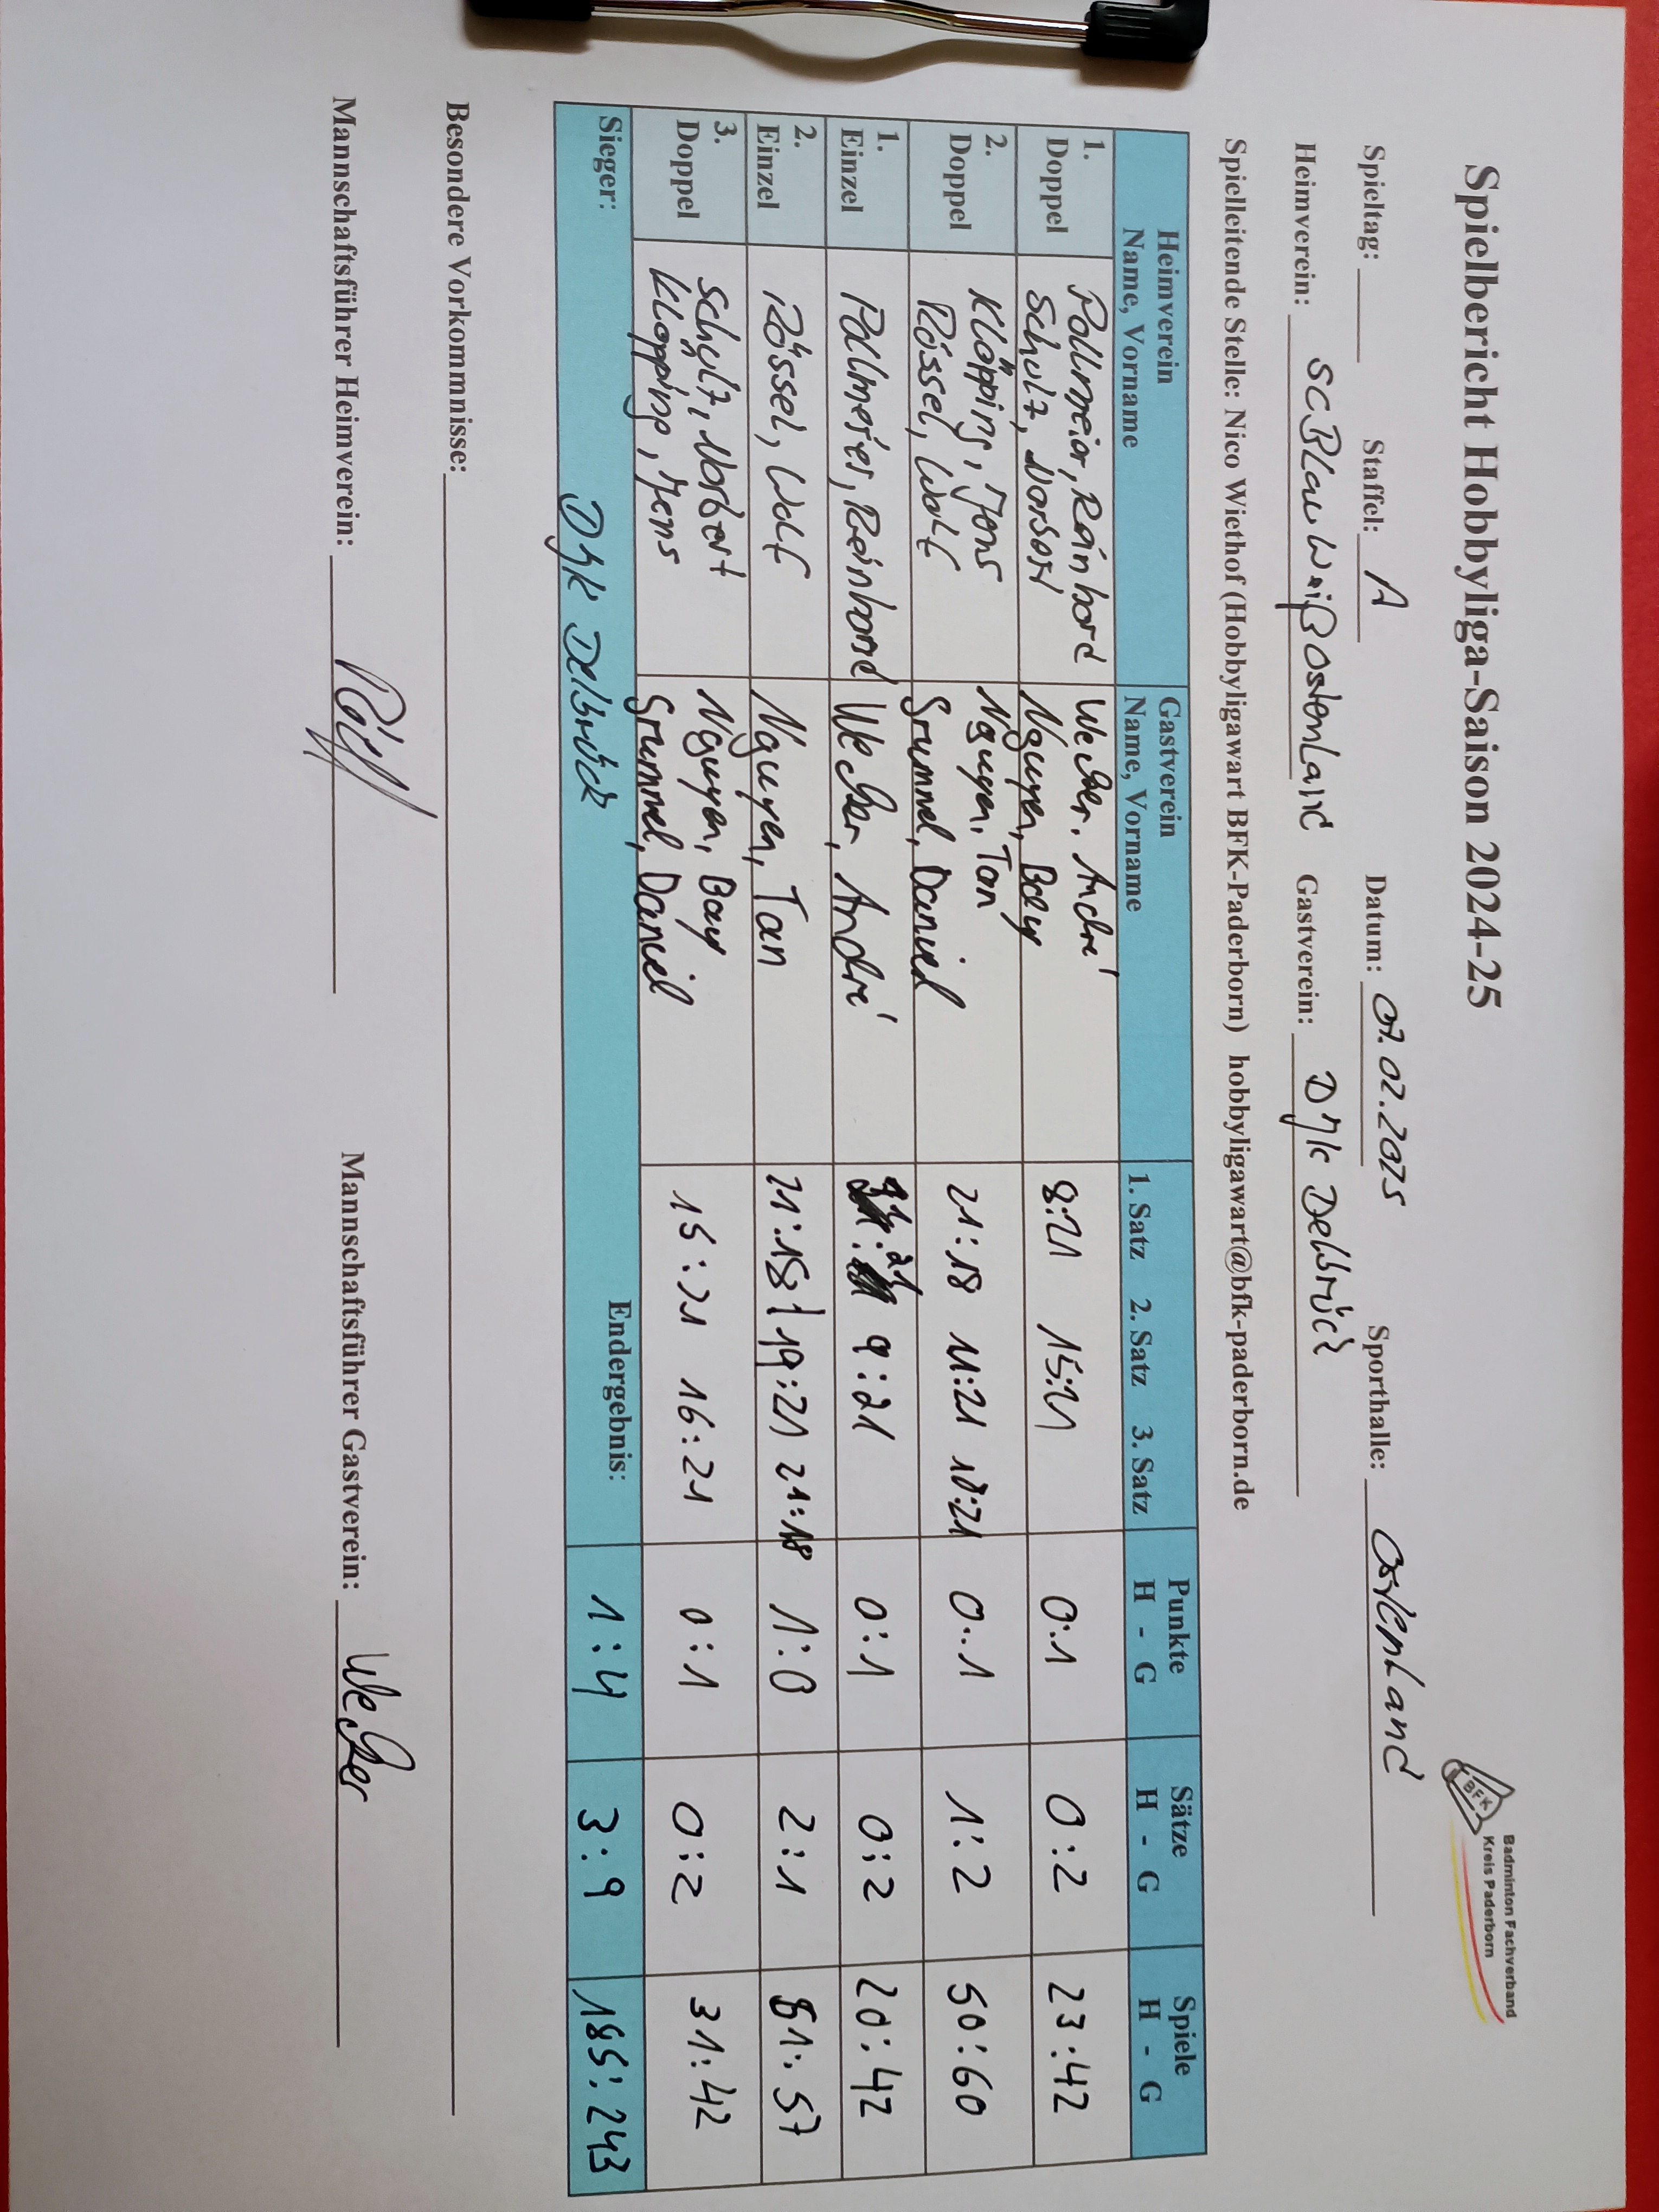 Spielbericht Hobbyliga-Saison 2024-25
BFK
Badminton Fachverband
Kreis Paderborn
Spieltag: Staffel: A Datum: 07.02.2025 Sporthalle: Ostenland
Heimverein: SC Blau Weiß Ostenland Gastverein: DJK Delbrück
Spielleitende Stelle: Nico Wiethof (Hobbyligawart BFK-Paderborn) hobbyligawart@bfk-paderborn.de
Heimverein Gastverein Punkte Sätze Spiele
Name, Vorname Name, Vorname 1. Satz 2. Satz 3. Satz H - G H - G H - G
1. Pollmeier, Reinhard Weber, André
Doppel Schulz, Norbert Nguyen, Bay 8:21 15:21 0:1 0:2 23:42
2. Klöpping, Jens Nguyen, Tan
Doppel Rössel, Wolf Grummel, Daniel 21:18 11:21 18:21 0:1 1:2 50:60
1.
Einzel Pollmeier, Reinhard Weber, André 21 9:21 0:1 0:2 20:42
2.
Einzel Rössel, Wolf Nguyen, Tan 21:18 19:21 21:18 1:0 2:1 61:57
3. Schulz, Norbert Nguyen, Bay
Doppel Klöpping, Jens Grummel, Daniel 15:21 16:21 0:1 0:2 31:42
Sieger: DJK Delbrück Endergebnis: 1:4 3:9 185:243
Besondere Vorkommnisse:
Mannschaftsführer Heimverein: Mannschaftsführer Gastverein: Weber